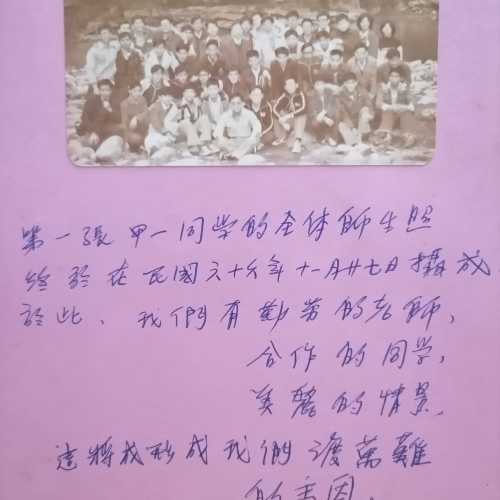 第一張甲一同学的全体師生照
終於在民國六十六年十一月廿七日攝成
於此、我們有勤劳的老師,
合作的同学,
美麗的情景,
這将成形成我們渡萬難
的主因